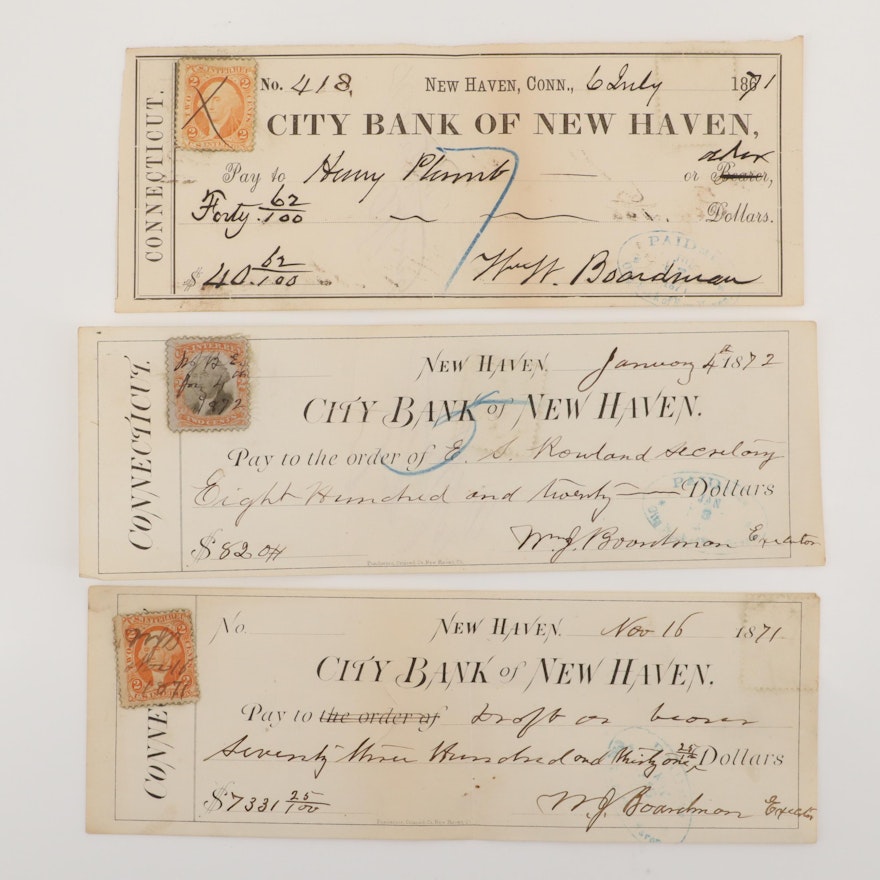 CONNECTICUT.
U.S. INTER. REV.
2 2
No. 418, NEW HAVEN, CONN., 6 July 1871
CITY BANK OF NEW HAVEN,
order
Pay to Henry Plumb or Bearer,
Forty 62/100 Dollars.
PAID
$40 62/100 Wm W. Boardman
CONNECTICUT.
U.S. INTER. REV.
Jan 4
1872
TWO CENTS
NEW HAVEN, January 4th 1872
CITY BANK of NEW HAVEN.
Pay to the order of E. S. Rowland Secretary
Eight Hundred and twenty Dollars
PAID
JAN
$820 Wm J. Boardman Executor
U.S. INTER. REV.
WJB
Nov 16
1871
No. NEW HAVEN, Nov 16 1871
CITY BANK of NEW HAVEN.
Pay to the order of Draft or bearer
Seventy three Hundred and thirty one 25/100 Dollars
$7331 25/100 W. J. Boardman Executor